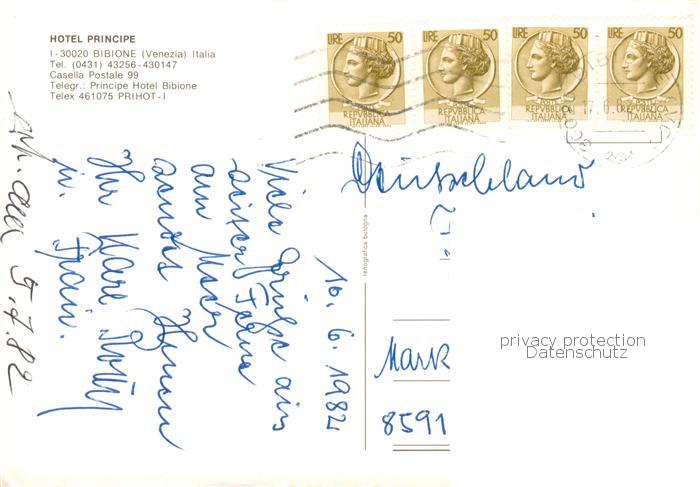 HOTEL PRINCIPE
I-30020 BIBIONE (Venezia) Italia
Tel. (0431) 43256-430147
Casella Postale 99
Telegr.: Principe Hotel Bibione
Telex 461075 PRIHOT-I
LIRE 50
POSTE
REPVBBLICA
ITALIANA
LIRE 50
POSTE
REPVBBLICA
ITALIANA
LIRE 50
POSTE
REPVBBLICA
ITALIANA
LIRE 50
POSTE
REPVBBLICA
ITALIANA
17.6.
10.6.1982
Viele Grüße aus
am Meer
sendet Ihnen
Ihr
u. Frau.
5.7.82
renografica bologna
Deutschland
Mark
8591
privacy protection
Datenschutz